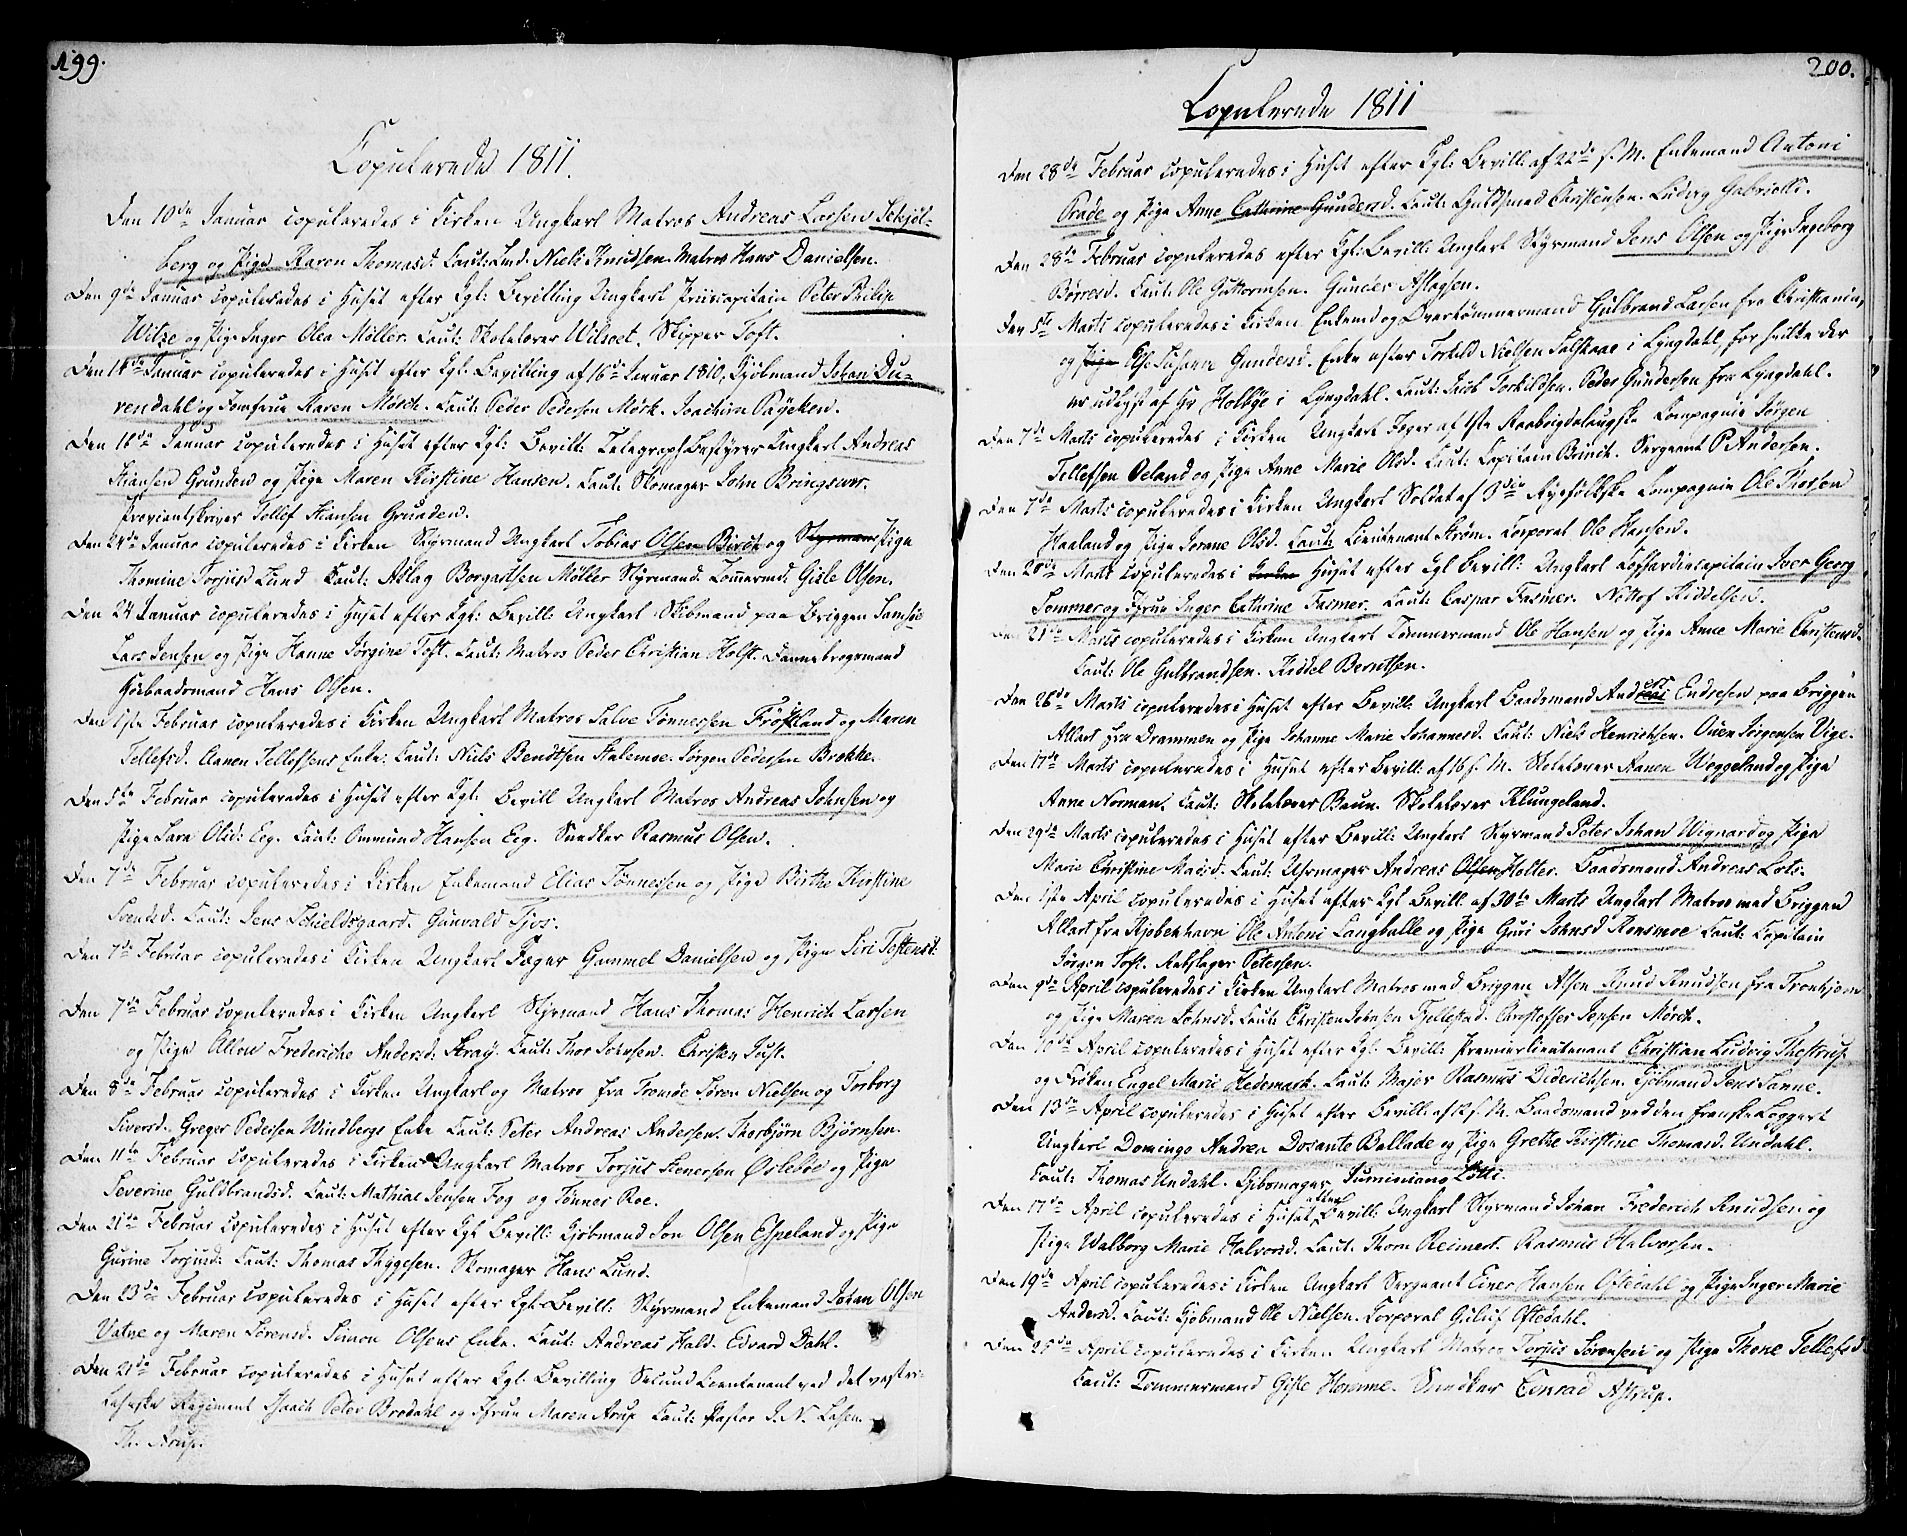 199.
Copulerede 1811.
Den 10de Januar copuleredes i Kirken Ungkarl Matros Andreas Larsen
berg og Pige Karen Thomasd. Caut: Niels Knudsen. Matros Hans Danielsen.
Den 9de Januar copuleredes i Huset efter Kgl: Bevilling Ungkarl Priiscapitain Peter Philip
Witze og Pige Inger Olea Möller. Caut: Skolelærer Wilsoet. Skipper Toft.
Den 14de Januar copuleredes i Huset efter Kgl: Bevilling af 16de Januar 1810, Kjöbmand Johan Du-
rendahl og Jomfrue Karen Mörch. Caut: Peder Pedersen Mörk. Joachim Päycken.
Den 18de Januar copuleredes i Huset efter Kgl: Bevill: Telegraph Bestyrer Ungkarl Andreas
Stiansen Grunden og Pige Maren Kirstine Hansen. Caut: Skomager John Bringsver.
Proviantskriver Tellef Stiansen Grunden.
Den 24de Januar copuleredes i Kirken Styrmand Ungkarl Tobias Olsen Birch og Styrman Pige
Thomine Torjusd Lund Caut: Aslag Borgartsen Möller Styrmand. Tömermd: Gisle Olsen.
Den 24 Januar copuleredes i Huset efter Kgl: Bevill: Ungkarl Skibmand paa Briggen Samsöe
Lars Jensen og Pige Hanne Jörgine Toft. Caut: Matros Peder Christian Holst. Dannebrogsmand
Höibaadsmand Hans Olsen.
Den 1ste Februar copuleredes i Kirken Ungkarl Matros Salve Tönnessen Fröstland og Maren
Tellefsd. Aanen Tellefsens Enke. Caut: Niels Bendtsen Stalemoe. Jörgen Pedersen Brokke.
Den 5te Februar copuleredes i Huset efter Kgl: Bevill Ungkarl Matros Andreas Johnsen og
Pige Sara Olsd: Eeg. Caut: Ommund Hansen Eeg. Snedker Rasmus Olsen.
Den 7de Februar copuleredes i Kirken Enkemand Elias Tönnessen og Pige Birthe Kirstine
Svendsd. Caut: Jens Schieldsgaard. Gunvald Tjos.
Den 7de Februar copuleredes i Kirken Ungkarl Jæger Gammel Danielsen og Pige Siri Testensd.
Den 7de Februar copuleredes i Kirken Ungkarl Styrmand Hans Thomas Henrich Larsen
og Pige Allow Frederiche Andersd. Straÿ. Caut: Thor Johnsen. Christen Just.
Den 8de Februar copuleredes i Kirken Ungkarl og Matros fra Tromöe Sören Nielsen og Torborg
Siversd. Greger Pedersen Windbergs Enke Caut: Peter Andreas Andersen. Thorbjörn Björnsen.
Den 11te Februar copuleredes i Kirken Ungkarl Matros Torjus Stenersen Ösleböe og Pige
Severine Guldbrandsd. Caut: Mathias Jensen Fog og Tönnes Roe.
Den 21de Februar copuleredes i Huset efter Kgl Bevill: Kjöbmand Jon Olsen Espeland og Pige
Gurine Torjusd. Caut: Thomas Thÿgesen. Skomager Hans Lund.
Den 23de Februar copuleredes i Huset efter Kgl: Bevill: Styrmand Enkemand Johan Olsen
Vatne og Maren Sörensd. Simon Olsens Enke. Caut: Andreas Hald. Edvard Dahl.
Den 21de Februar copuleredes i Huset efter Kgl: Bevilling Secund Lieutenant ved det vesterl-
Regiment Isaach Peter Brodahl og Jfrue Maren Arup Caut: Pastor J. N. Lasen.
Th. Arup.
200.
Copulerede 1811
Den 28de Februar copuleredes i Huset efter Kgl: Bevill: af 22de s. M. Enkemand Antoni
Pragje og Pige Anne Cathrine Gundersd. Caut: Guldsmed Christensen. Ludvig Gabrielli.
Den 28de Februar copuleredes efter Kgl: Bevill: Ungkarl Styrmand Jens Olsen og Pige Ingeborg
Börresd. Caut: Ole Guttormsen. Gunder Aslagsen.
Den 5te Marts copuleredes i Kirken Enkemd og Overtömmermand Gulbrand Larsen fra Christiania,
og Pige Else Susann Gundersd. Enke efter Torkild Nielsen Salskaae i Lyngdahl, for hvilke der
er udlyst af Hr Holbye i Lyngdahl. Caut: Jacob Torkildsen. Peder Gundersen fra Lyngdahl.
Den 7de Marts copuleredes i Kirken Ungkarl Jæger af 1ste Raabÿgdelaugske Compagnie Jörgen
Tellefsen Oeland og Pige Anne Marie Olsd. Caut: Capitain Brinch. Sergeant P. Andersen.
Den 7de Marts copuleredes i Kirken Ungkarl Soldat af 3die Ryefölkske Compagnie Ole Thorsen
Haaland og Pige Jorane Olsd. Caut: Lieutenant Ström. Corporal Ole Hansen.
Den 20de Marts copuleredes i Kirken Huset efter Kgl Bevill: Ungkarl Coffardiecapitain Iver Georg
Sommer og Jfrue Inger Cathrine Fasmer. Caut: Caspar Fasmer. Nottof Kiddelsen.
Den 21de Marts copuleredes i Kirken Ungkarl Tömmermand Ole Hansen og Pige Anne Marie Christensd.
Caut: Ole Gulbrandsen. Kiddel Berntsen.
Den 26de Marts copuleredes i Huset efter Bevill: Ungkarl Baadsmand Andreas Endresen paa Briggen
Allart fra Drammen og Pige Johanne Marie Johannesd. Caut: Niels Henrichsen. Ouen Jörgensen Vige.
Den 17de Marts copuleredes i Huset efter Bevill: af 16 s. M. Skolelærer Aanen Weggeland og Pige
Anne Norman. Caut: Skolelærer Baun. Skolelærer Klungeland.
Den 29de Marts copuleredes i Huset efter Bevill: Ungkarl Styrmand Peter Johan Wignard og Pige
Marie Christine Macisd. Caut: Uhrmager Andreas Olsen Holter. Baadsmand Andreas Lots.
Den 1ste April copuleredes i Huset efter Kgl Bevill: af 30te Marts Ungkarl Matros med Briggen
Allart fra Kjøbenhavn Ole Antoni Langballe og Pige Guri Johnsd Konsmoe Caut: Capitain
Jörgen Toft. Rebslager Petersen.
Den 9de April copuleredes i Kirken Ungkarl Matros med Briggen Alsen Knud Knudsen fra Tronhjem
og Pige Maren Johnsd. Caut: Christen Johnsen Fjellestad. Christoffer Jensen Mörch.
Den 10de April copuleredes i Huset efter Kgl: Bevill: Premierlieutenant Christian Ludvig Thestrup
og Fröken Engel Marie Hedemark. Caut: Major Rasmus Diderichsen. Kjöbmand Jens Sanne.
Den 13de April copuleredes i Huset efter Bevill: af 12 s. M. Baadsmand ved den Franske Loggert
Ungkarl Domingo Andrea Dosanto Ballade og Pige Grethe Kirstine Thomasd. Undahl.
Caut: Thomas Undahl. Skibsmager Luminiano Zotti.
Den 17de April copuleredes i Huset efter Bevill: Ungkarl Styrmand Johan Frederich Knudsen og
Pige Walborg Marie Halvorsd. Caut. Thorn Reimert. Rasmus Halvorsen.
Den 19de April copuleredes i Kirken Ungkarl Sergeant Einer Hansen Oftedahl og Pige Inger Marie
Andersd. Caut: Kjöbmand Ole Nielsen. Corporal Giluf Oftedahl.
Den 25de April copuleredes i Kirken Ungkarl Matros Torjus Sörensen og Pige Thone Tellefsd.
Caut: Tømmermand Gisle Homme. Snedker Conrad Astrup.